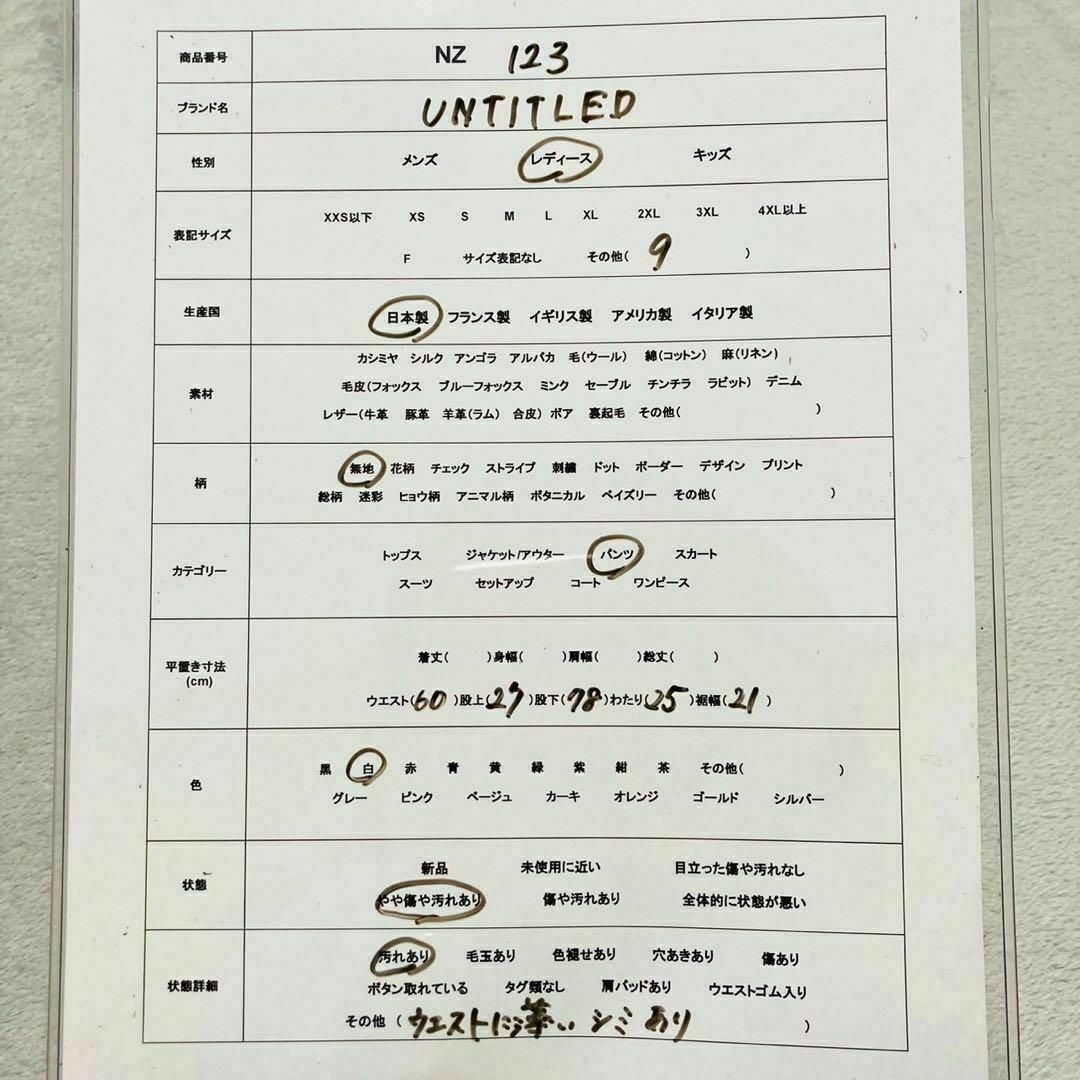 商品番号 NZ 123
ブランド名 UNTITLED
性別 メンズ レディース キッズ
XXS以下 XS S M L XL 2XL 3XL 4XL以上
表記サイズ
F サイズ表記なし その他( 9 )
生産国 日本製 フランス製 イギリス製 アメリカ製 イタリア製
カシミヤ シルク アンゴラ アルパカ 毛(ウール) 綿(コットン) 麻(リネン)
素材 毛皮(フォックス ブルーフォックス ミンク セーブル チンチラ ラビット) デニム
レザー(牛革 豚革 羊革(ラム) 合皮) ボア 裏起毛 その他( )
柄 無地 花柄 チェック ストライプ 刺繍 ドット ボーダー デザイン プリント
総柄 迷彩 ヒョウ柄 アニマル柄 ボタニカル ペイズリー その他( )
トップス ジャケット/アウター パンツ スカート
カテゴリー
スーツ セットアップ コート ワンピース
平置き寸法 着丈( )身幅( )肩幅( )総丈( )
(cm)
ウエスト(60)股上(27)股下(78)わたり(25)裾幅(21)
黒 白 赤 青 黄 緑 紫 紺 茶 その他( )
色
グレー ピンク ベージュ カーキ オレンジ ゴールド シルバー
新品 未使用に近い 目立った傷や汚れなし
状態
やや傷や汚れあり 傷や汚れあり 全体的に状態が悪い
汚れあり 毛玉あり 色褪せあり 穴あきあり 傷あり
状態詳細 ボタン取れている タグ類なし 肩パッドあり ウエストゴム入り
その他 ( ウエストに薄い シミ あり )